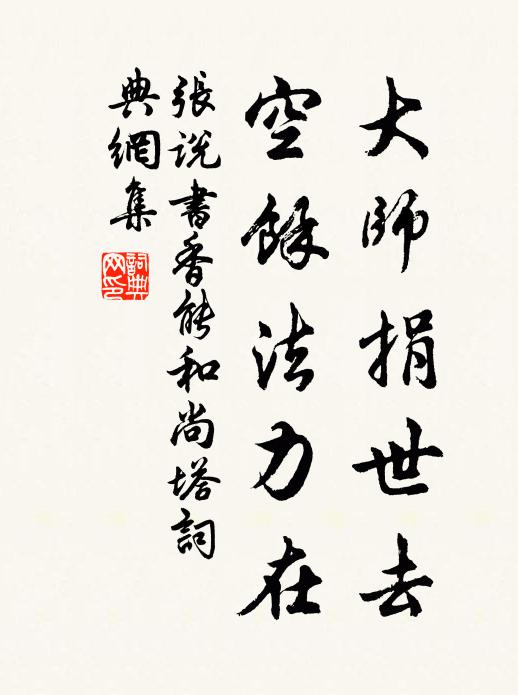 大師捐世去
空餘法力在
張説書香能和尚塔詞
典網集
詞典網印